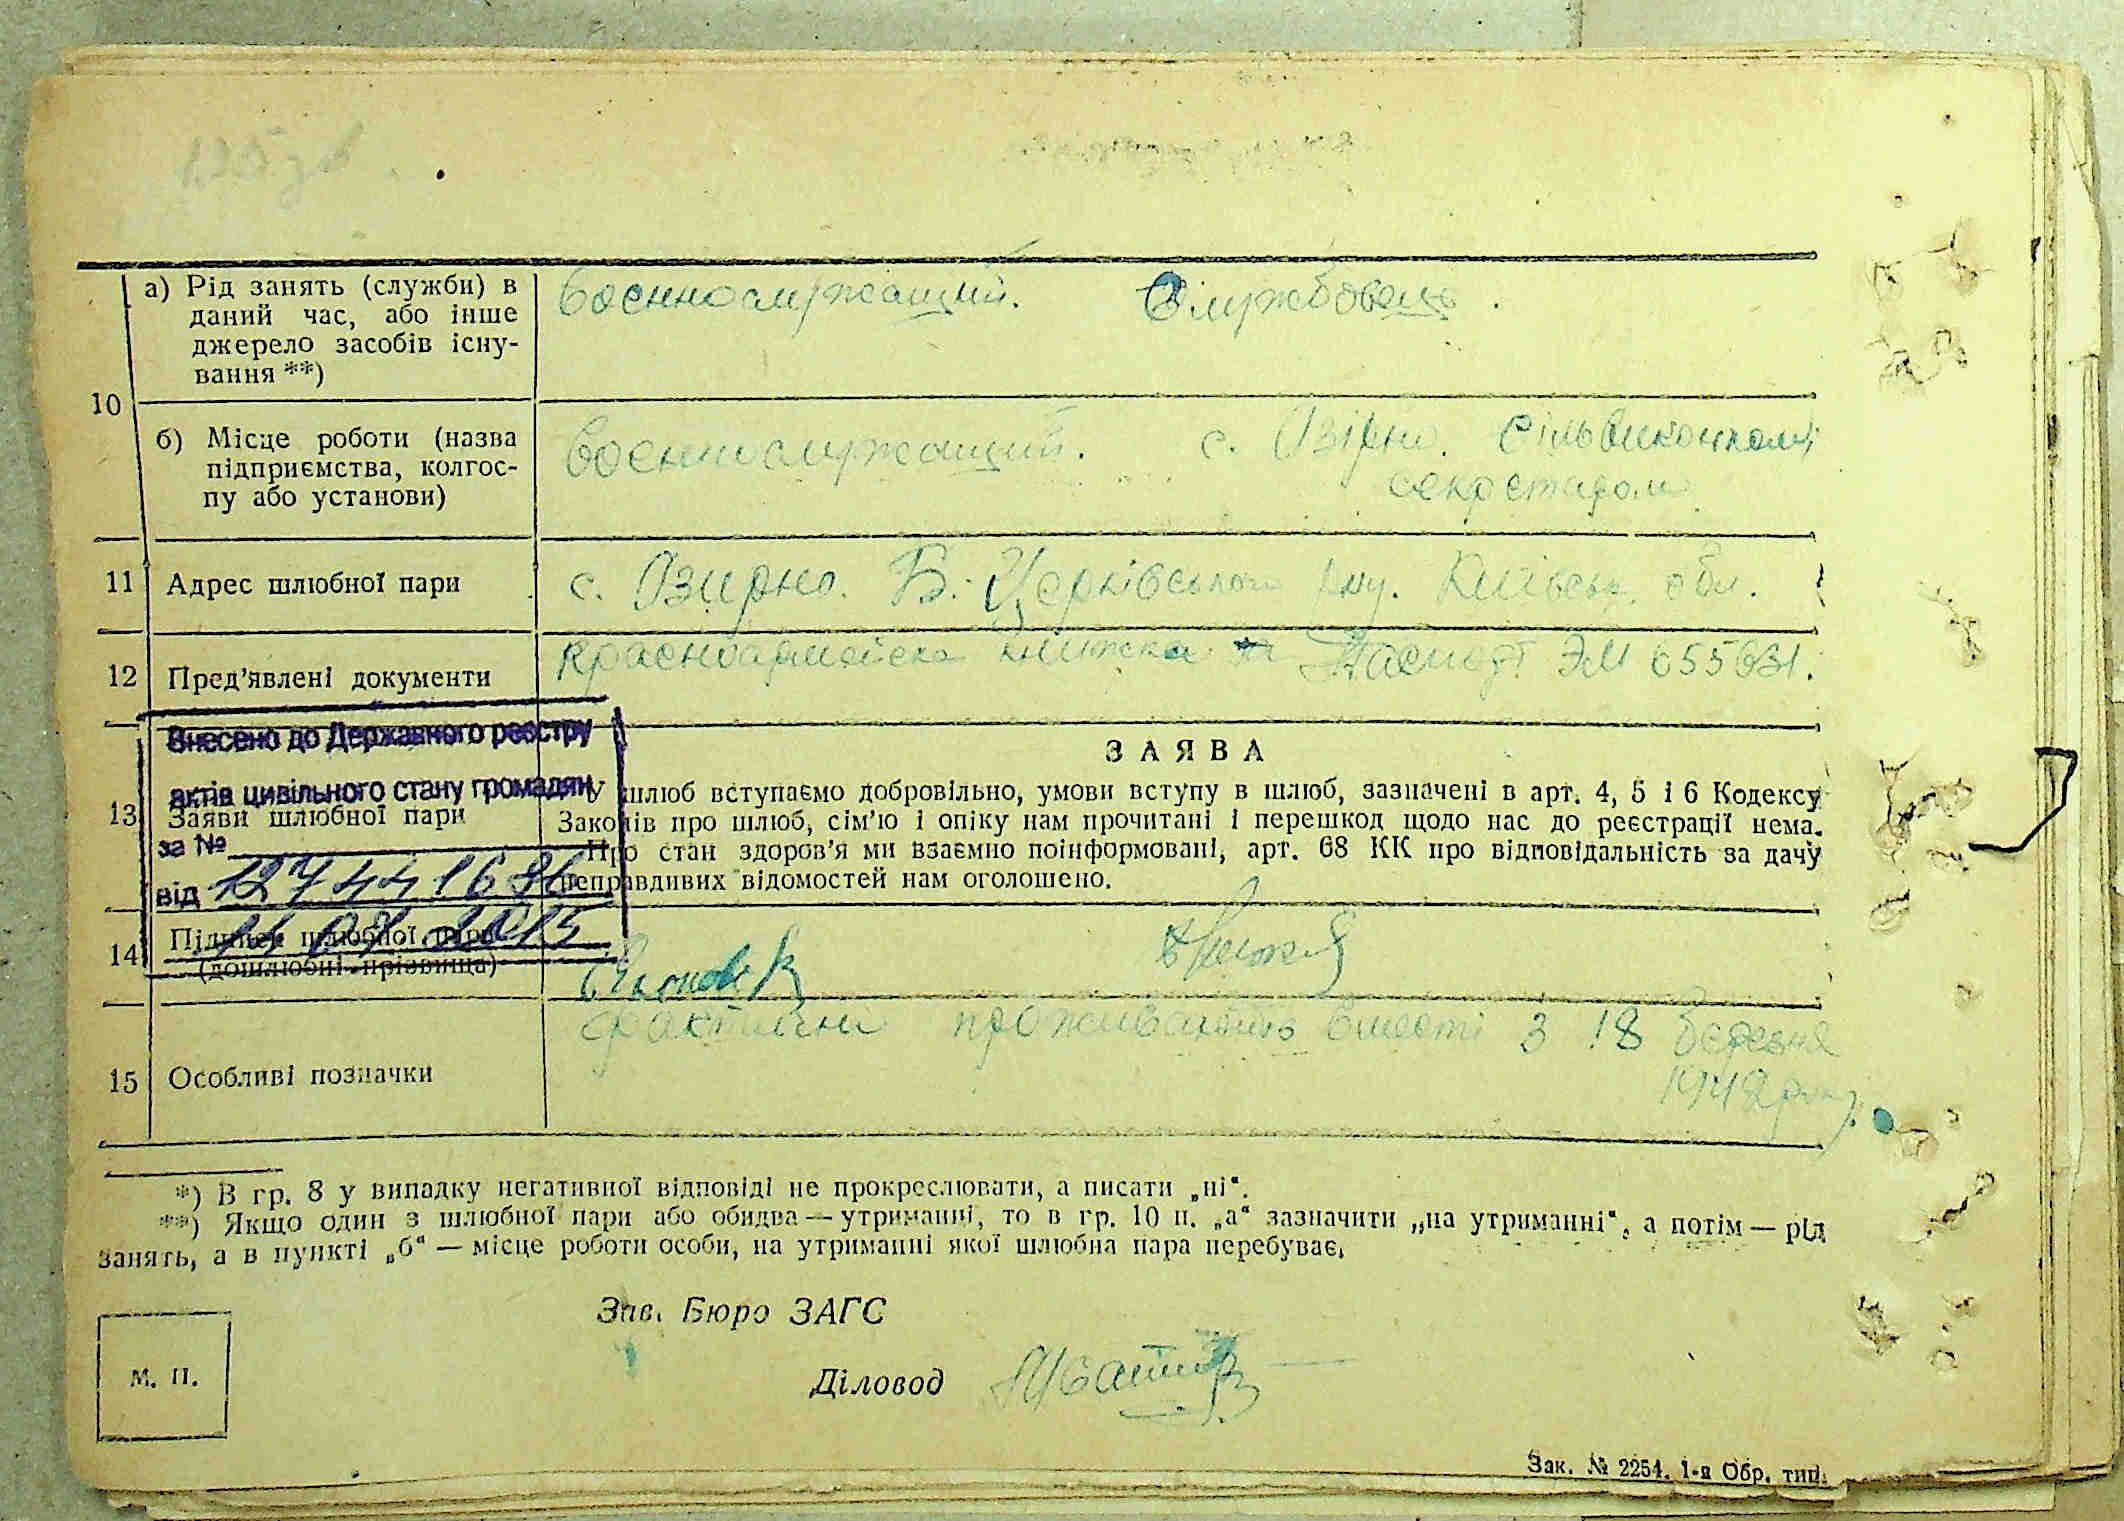 10
а) Рід занять (служби) в
даний час, або інше
джерело засобів існу-
вання **)
воєннослужащий. Службовець.
б) Місце роботи (назва
підприємства, колгос-
пу або установи)
воєннослужащий. с. Озірно. Сільвиконком,
секретарем
11 Адрес шлюбної пари
с. Озирно. Б. Церківського р-ну. Київськ. обл.
12 Пред'явлені документи
Красноармейска книжка Паспорт ЭМ 655631.
Внесено до Державного реєстру
актів цивільного стану громадян
за №
від 12744168
11 07 2015
13 Заяви шлюбної пари
ЗАЯВА
У шлюб вступаємо добровільно, умови вступу в шлюб, зазначені в арт. 4, 5 і 6 Кодексу
Законів про шлюб, сім'ю і опіку нам прочитані і перешкод щодо нас до реєстрації нема.
Про стан здоров'я ми взаємно поінформовані, арт. 68 КК про відповідальність за дачу
неправдивих відомостей нам оголошено.
14 Підписи шлюбної пари
(дошлюбні прізвища)
15 Особливі позначки
фактично проживають вместі з 18 березня
1942 року.
*) В гр. 8 у випадку негативної відповіді не прокреслювати, а писати „ні“.
**) Якщо один з шлюбної пари або обидва — утриманці, то в гр. 10 п. „а“ зазначити „на утриманні“, а потім — рід
занять, а в пункті „б“ — місце роботи особи, на утриманні якої шлюбна пара перебуває.
Зав. Бюро ЗАГС
Діловод
М. П.
Зак. № 2254. 1-а Обр. тип.